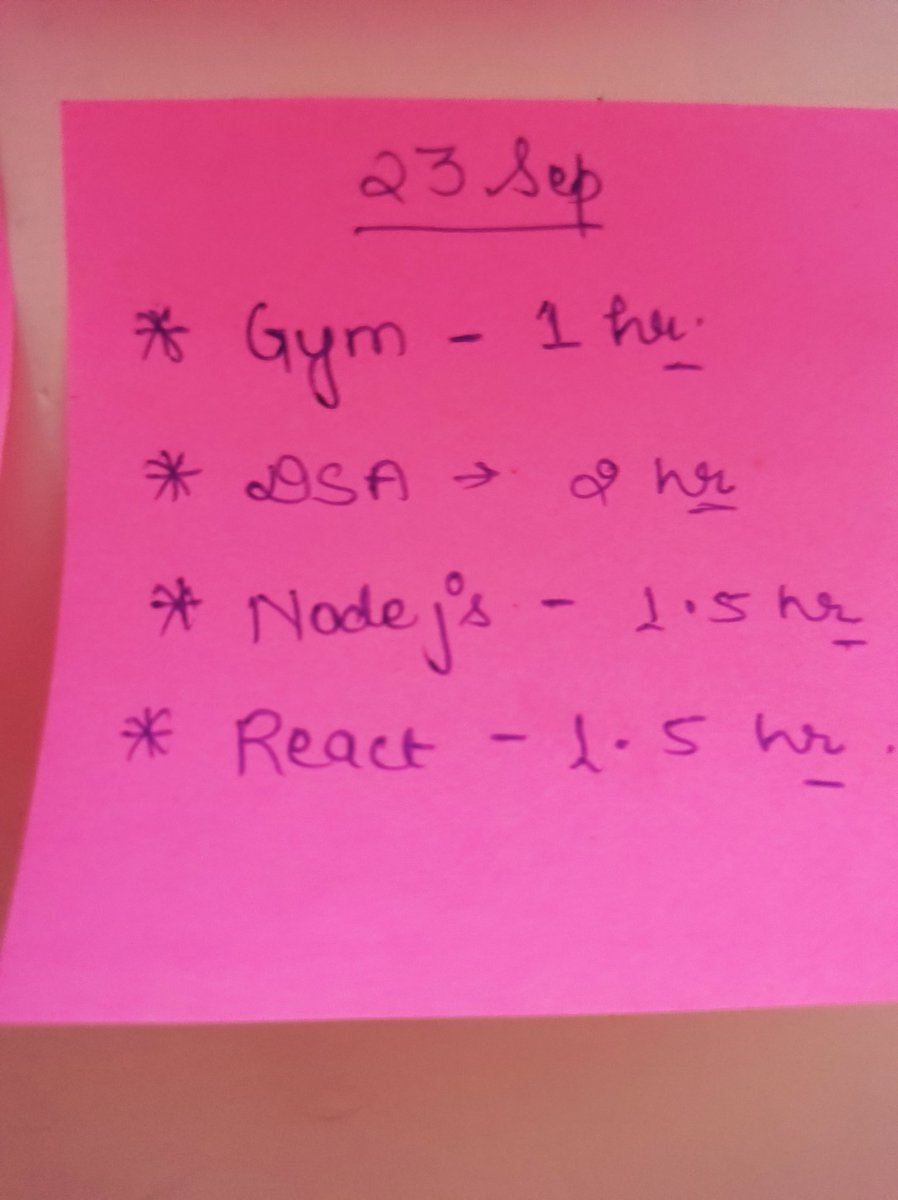 23 Sep
* Gym - 1 hr.
* DSA → 2 hr
* Node js - 1.5 hr
* React - 1.5 hr.